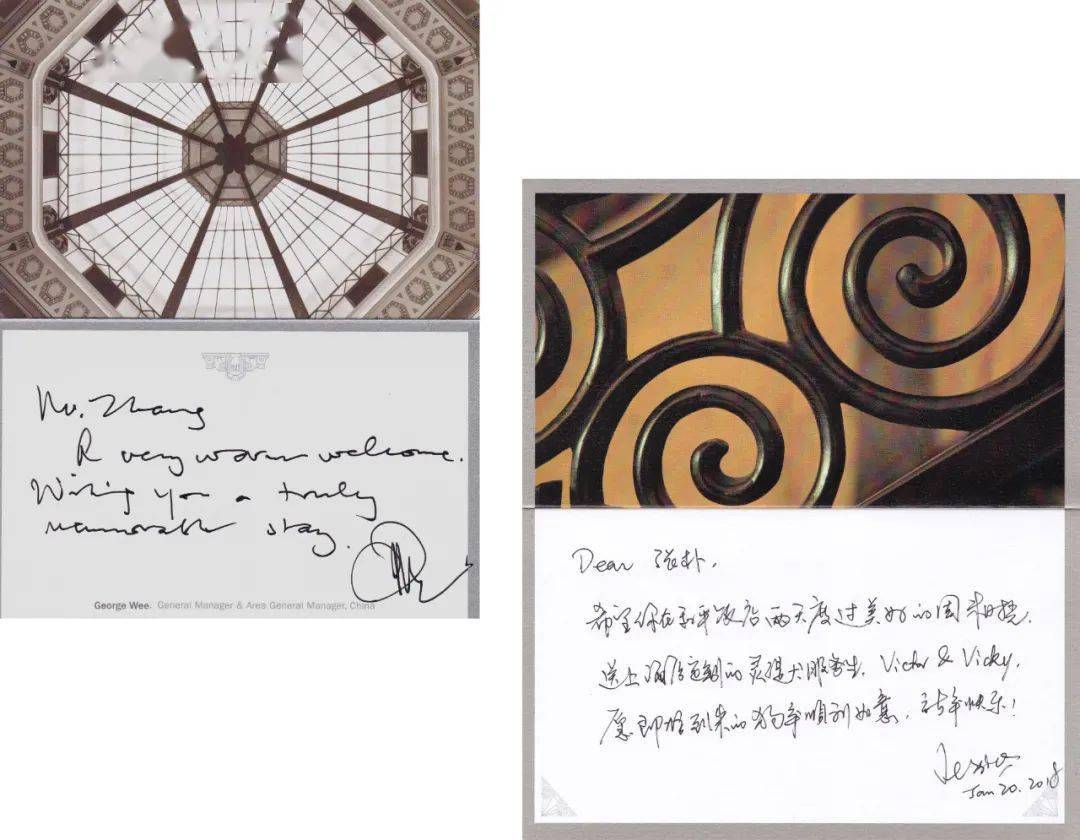 Mr. Zhang
A very warm welcome.
Wishing you a truly
memorable stay.
George Wee. General Manager & Area General Manager, China
Dear 张朴,
希望你在和平饭店两天度过美好的周末时光.
送上酒店定制的灵缇犬服务生, Victor & Vicky,
愿即将到来的狗年顺利如意, 新年快乐!
Jessica
Jan 20. 2018